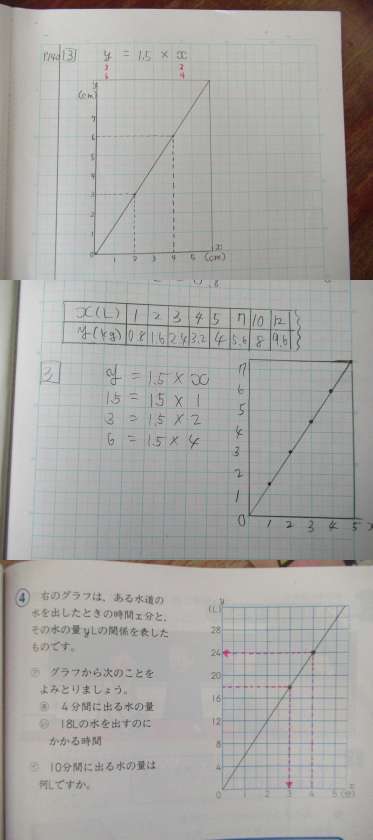 P.140 3 y = 1.5 × x
3 2
6 4
y
(cm)
7
6
5
4
3
2
1
0 1 2 3 4 5 x
(cm)
x(L) 1 2 3 4 5 7 10 12
y(kg) 0.8 1.6 2.4 3.2 4 5.6 8 9.6
3 y = 1.5 × x
1.5 = 1.5 × 1
3 = 1.5 × 2
6 = 1.5 × 4
7
6
5
4
3
2
1
0 1 2 3 4 5 x
4 右のグラフは、ある水道の
水を出したときの時間x分と、
その水の量yLの関係を表した
ものです。
㋐ グラフから次のことを
よみとりましょう。
あ 4分間に出る水の量
い 18Lの水を出すのに
かかる時間
㋑ 10分間に出る水の量は
何Lですか。
y
(L)
28
24
20
16
12
8
4
0 1 2 3 4 5 (分)
x